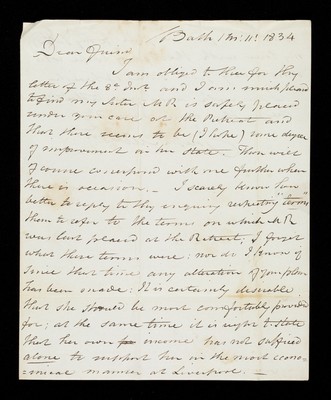 Bath 1 Mo: 11: 1834
Dear Friend
I am obliged to thee for thy
letter of the 8th Inst and I am much pleased
to find my Sister M R is safely placed
under your care at the Retreat and
that there seems to be (I hope) some degree
of improvement in her state. Thou wilt
of course correspond with me further when
there is occasion. – I scarcely know how
better to reply to thy enquiry respecting terms
than to refer to the terms on which M R
was last placed at the Retreat; I forget
what these terms were: nor do I know if
since that time any alteration of your plan
has been made: It is certainly desirable
that she should be most comfortably provided
for; at the same time it is right to state
that her own income has not sufficed
alone to support her in the most econo-
mical manner at Liverpool. –